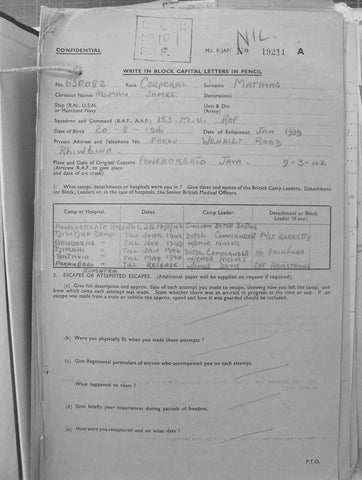 NIL.
CONFIDENTIAL
M.I. 9/JAP/ No 19211 A
WRITE IN BLOCK CAPITAL LETTERS IN PENCIL
No. 630082 Rank CORPORAL Surname MATHIAS
Christian Names JAMES. Decorations
Ship (R.N., U.S.N. or Merchant Navy) Unit & Div. (Army)
Squadron and Command (R.A.F., A.A.F.) 153. M.U. RAF
Date of Birth 20-8-19 Date of Enlistment JAN 1939
Private Address and Telephone No. WENALLT ROAD
RHIWBINA.
Place and Date of Original Capture POWEROKERTO JAVA. 9-3-42
(Aircrew R.A.F. to give place and date of a/c crash).
1. What camps, detachments or hospitals were you in? Give dates and names of the British Camp Leaders, Detachment
(or Block) Leaders, or in case of hospitals, the Senior British Medical Officers.
Camp or Hospital. Dates. Camp Leader. Detachment or Block Leader (if any).
POWEROKERTO HOSPITAL CIVILIAN DUTCH DOCTOR
CAMP TILL JUNE 1942 DUTCH COMMANDER GARRETTY
BANDOENG " TILL NOV W/CMDR NICHOLS
TJIMAHI " TILL JAN 1944 DUTCH COMMANDER
BATAVIA " TILL MAY 1944 W/CMDR NICHOLS
" TILL RELEASE W/CMDR DAVIS CPT ARMSTRONG
SUMATRA
2. ESCAPES OR ATTEMPTED ESCAPES. (Additional paper will be supplied on request if required).
(a) Give full description and approx. date of each attempt you made to escape, showing how you left the camp, and
from which camp each attempt was made. State whether there was an-rest in progress at the time or not. If an
escape was made from a train or vehicle the approx. speed and how it was guarded should be included.
(b) Were you physically fit when you made these attempts?
(c) Give Regimental particulars of anyone who accompanied you on each attempt.
What happened to them?
(d) Give briefly your experiences during periods of freedom.
(e) How were you recaptured and on what date?
P.T.O.